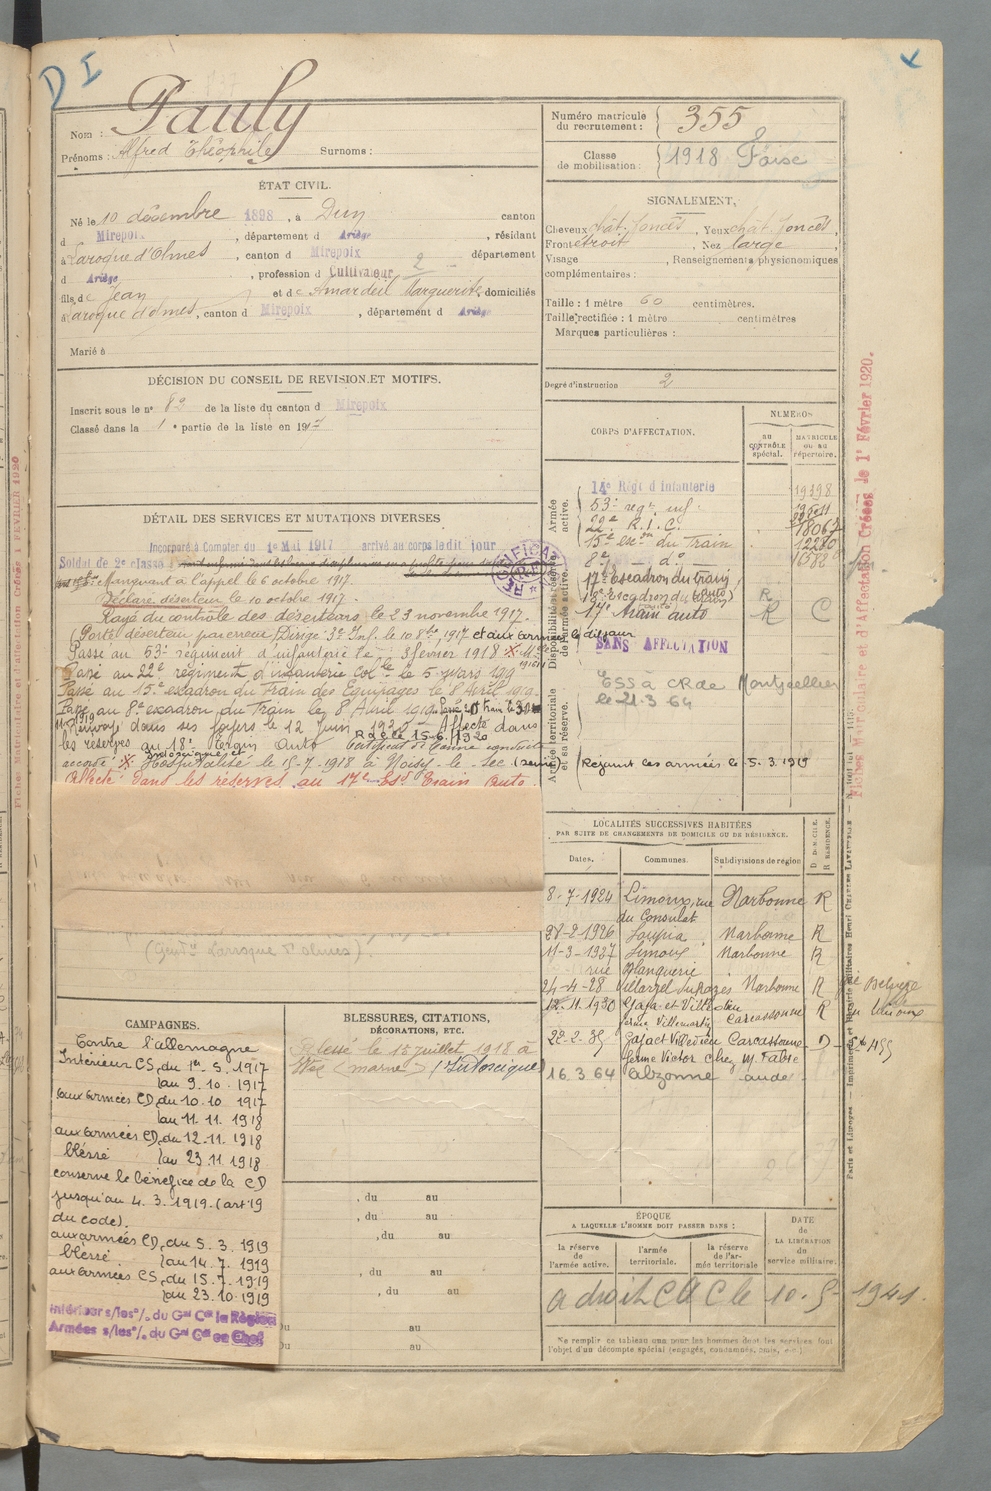 D I
Nom : Pauly
Prénoms : Alfred Théophile Surnoms :
Numéro matricule du recrutement : 355
Classe de mobilisation : 1918
ÉTAT CIVIL.
Né le 10 décembre 1898, à Dun canton
d Mirepoix, département d Ariège, résidant
à Laroque d'Olmes, canton d Mirepoix département
d Ariège, profession d Cultivateur 2
fils de Jean et de Amardeil Marguerite domiciliés
à Laroque d'olmes, canton d Mirepoix, département d Ariège
Marié à
SIGNALEMENT,
Cheveux chât. foncés, Yeux chât. foncés,
Front étroit, Nez large,
Visage , Renseignements physionomiques
complémentaires :
Taille : 1 mètre 60 centimètres.
Taille rectifiée : 1 mètre centimètres
Marques particulières :
Degré d'instruction 2
DÉCISION DU CONSEIL DE REVISION ET MOTIFS.
Inscrit sous le n° 82 de la liste du canton d Mirepoix
Classé dans la 1e partie de la liste en 1917
DÉTAIL DES SERVICES ET MUTATIONS DIVERSES
Incorporé à Compter du 1er Mai 1917 arrivé au corps le dit jour
Soldat de 2e classe
Manquant à l'appel le 6 octobre 1917.
Déclaré déserteur le 10 octobre 1917.
Rayé du contrôle des déserteurs le 23 novembre 1917.
Porté déserteur par erreur, Dirigé 3e Inf. le 10 8bre 1917 et aux armées le dit jour
Passé au 53e régiment d'infanterie le 3 février 1918
Passé au 22e régiment d'infanterie Colle le 5 mars 1919
Passé au 15e escadron du Train des Equipages le 8 Avril 1919.
Passé au 8e escadron du Train le 8 Avril 1919.
Renvoyé dans ses foyers le 12 Juin 1920 Affecté dans
R de le 15-6-1920
les réserves au 18e Auto Certificat de bonne conduite
accordé Hospitalisé le 15-7-1918 à Noisy-le-Sec (seine)
Affecté dans les réserves au 17e Esc Train Auto.
(Gendie Larroque d'olmes).
CORPS D'AFFECTATION.
NUMÉROS
AU CONTRÔLE spécial.
MATRICULE ou au répertoire.
Armée active.
14e Régt d'infanterie 19398
53e régt inf.
22e R.I.C. 18067
15e escon du Train 12280
8e d°
Disponibilité et réserve de l'armée active.
17e Escadron du train
Escadron du (auto) R
17e train auto R C
SANS AFFECTATION
Armée territoriale et sa réserve.
ESS à CR de Montpellier
le 21.3 64
(Rejoint les armées le 5.3.1919
RECTIFICAT
LOCALITÉS SUCCESSIVES HABITÉES
PAR SUITE DE CHANGEMENTS DE DOMICILE OU DE RÉSIDENCE.
Dates. Communes. Subdivisions de région D DOMICILE. R RÉSIDENCE.
8-7-1924 Limoux, rue Narbonne R
du Consulat
28-2-1926 Loupia Narbonne R
11-3-1927 Limoux Narbonne R
rue Blanquerie
24-4-28 Villarzel du Razès Narbonne R
12-11-1930 Gaja et Villedieu Carcassonne R
ferme Villemartin
22-2-35 Gaja et Villedieu Carcassonne D
ferme Victor chez M. Fabre
16.3 64 Alzonne aude
CAMPAGNES.
Contre l'allemagne
Intérieur CS, du 1er 5. 1917
au 9.10.1917
aux armées CD, du 10.10 1917
au 11.11.1918
aux armées CD, du 12.11.1918
blessé au 23.11.1918
conserve le bénéfice de la CD
jusqu'au 4.3.1919. (art 19
du code).
aux armées CD, du 5.3.1919
blessé au 14.7.1919
aux armées CS, du 15.7.1919
au 23.10.1919
Intérieur s/les o/. du Gal Ct la Région
Armées s/les o/. du Gal Ct en Chef
BLESSURES, CITATIONS,
DÉCORATIONS, ETC.
Blessé le 15 juillet 1918 à
(marne) (
, du au
, du au
, du au
, du au
, du au
du au
du au
ÉPOQUE
A LAQUELLE L'HOMME DOIT PASSER DANS :
la réserve de l'armée active.
l'armée territoriale.
la réserve de l'armée territoriale
DATE de LA LIBÉRATION du service militaire.
a droit C d C le 10-5-1941.
Ne remplir ce tableau que pour les hommes dont les services font
l'objet d'un décompte spécial (engagés, condamnés, omis, etc.)
Fiches Matriculaire et d'Affectation Créées le 1er Février 1920.
Paris et Limoges — Imprimerie et Librairie Militaires Henri CHARLES-LAVAUZELLE